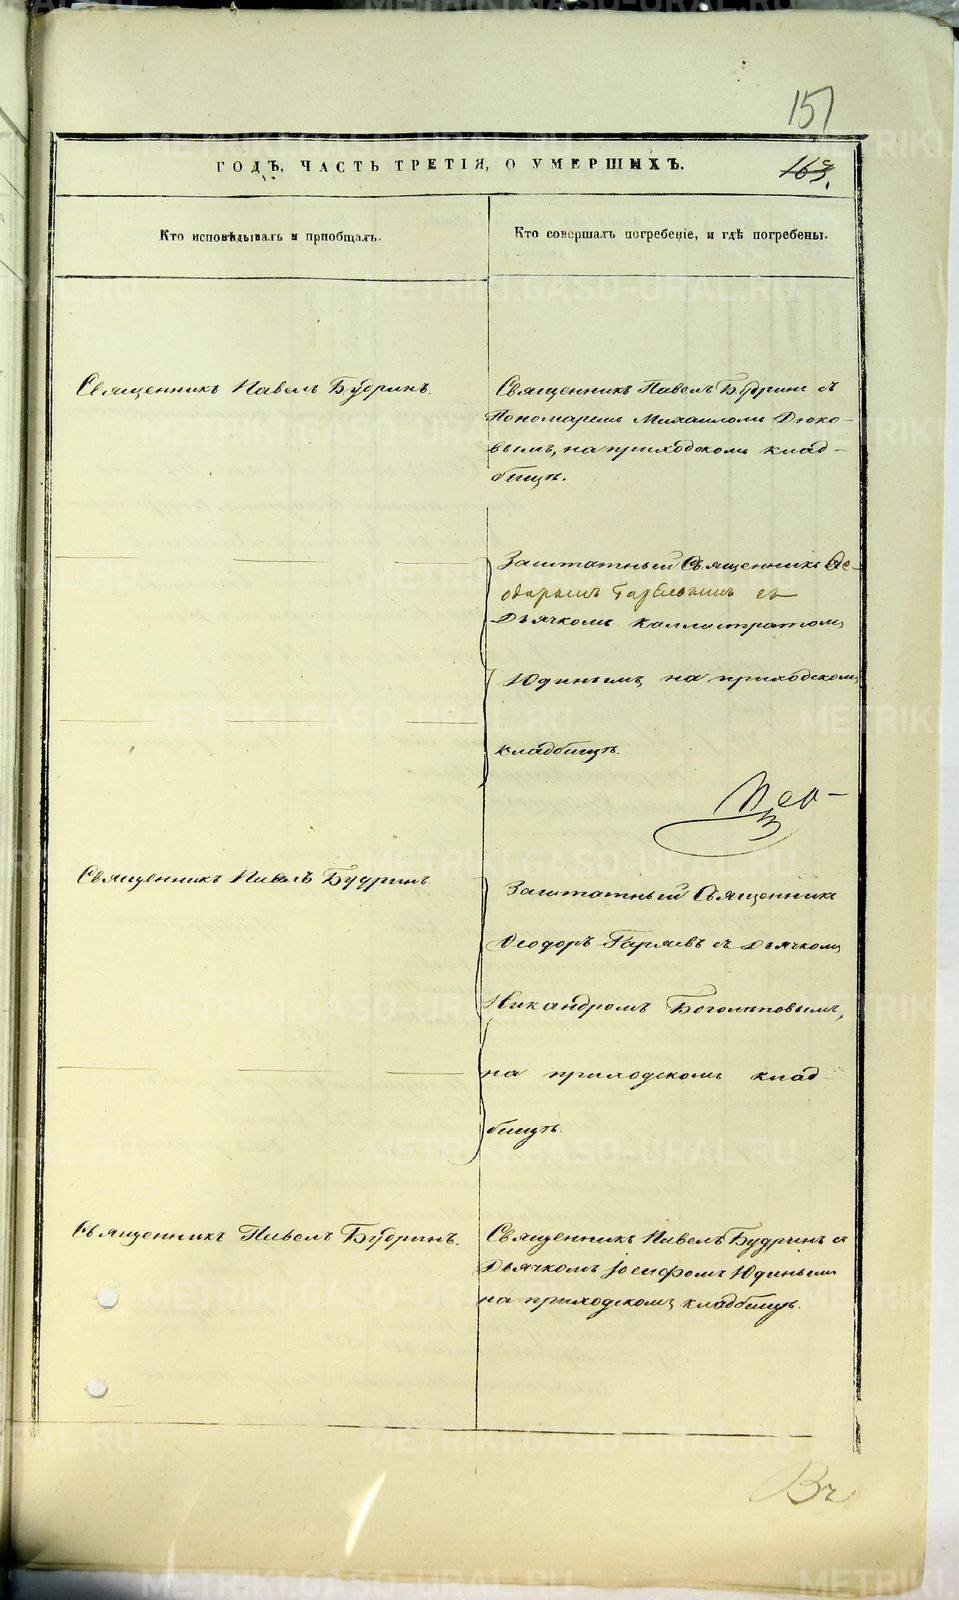 151
ГОДЪ, ЧАСТЬ ТРЕТІЯ, О УМЕРШИХЪ.
163.
Кто исповѣдывалъ и пріобщалъ.
Кто совершалъ погребеніе, и гдѣ погребены.
Священникъ Павелъ Будринъ.
Священникъ Павелъ Будринъ съ
Пономаремъ Михаиломъ Дюко-
вымъ, на приходскомъ клад-
бищѣ.
Заштатный Священникъ Ѳе-
одоромъ съ
Дьячкомъ Каллистратомъ
Юдинымъ, на приходскомъ
кладбищѣ.
Священникъ Павелъ Будринъ
Заштатный Священникъ
Ѳеодоръ Гаряевъ съ Дьячкомъ
Никандромъ Боголѣповымъ,
на приходскомъ клад-
бищѣ.
Священникъ Павелъ Будринъ.
Священникъ Павелъ Будринъ съ
Дьячкомъ Іосифомъ Юдинымъ
на приходскомъ кладбищѣ.
METRIKI.GASO-URAL.RU